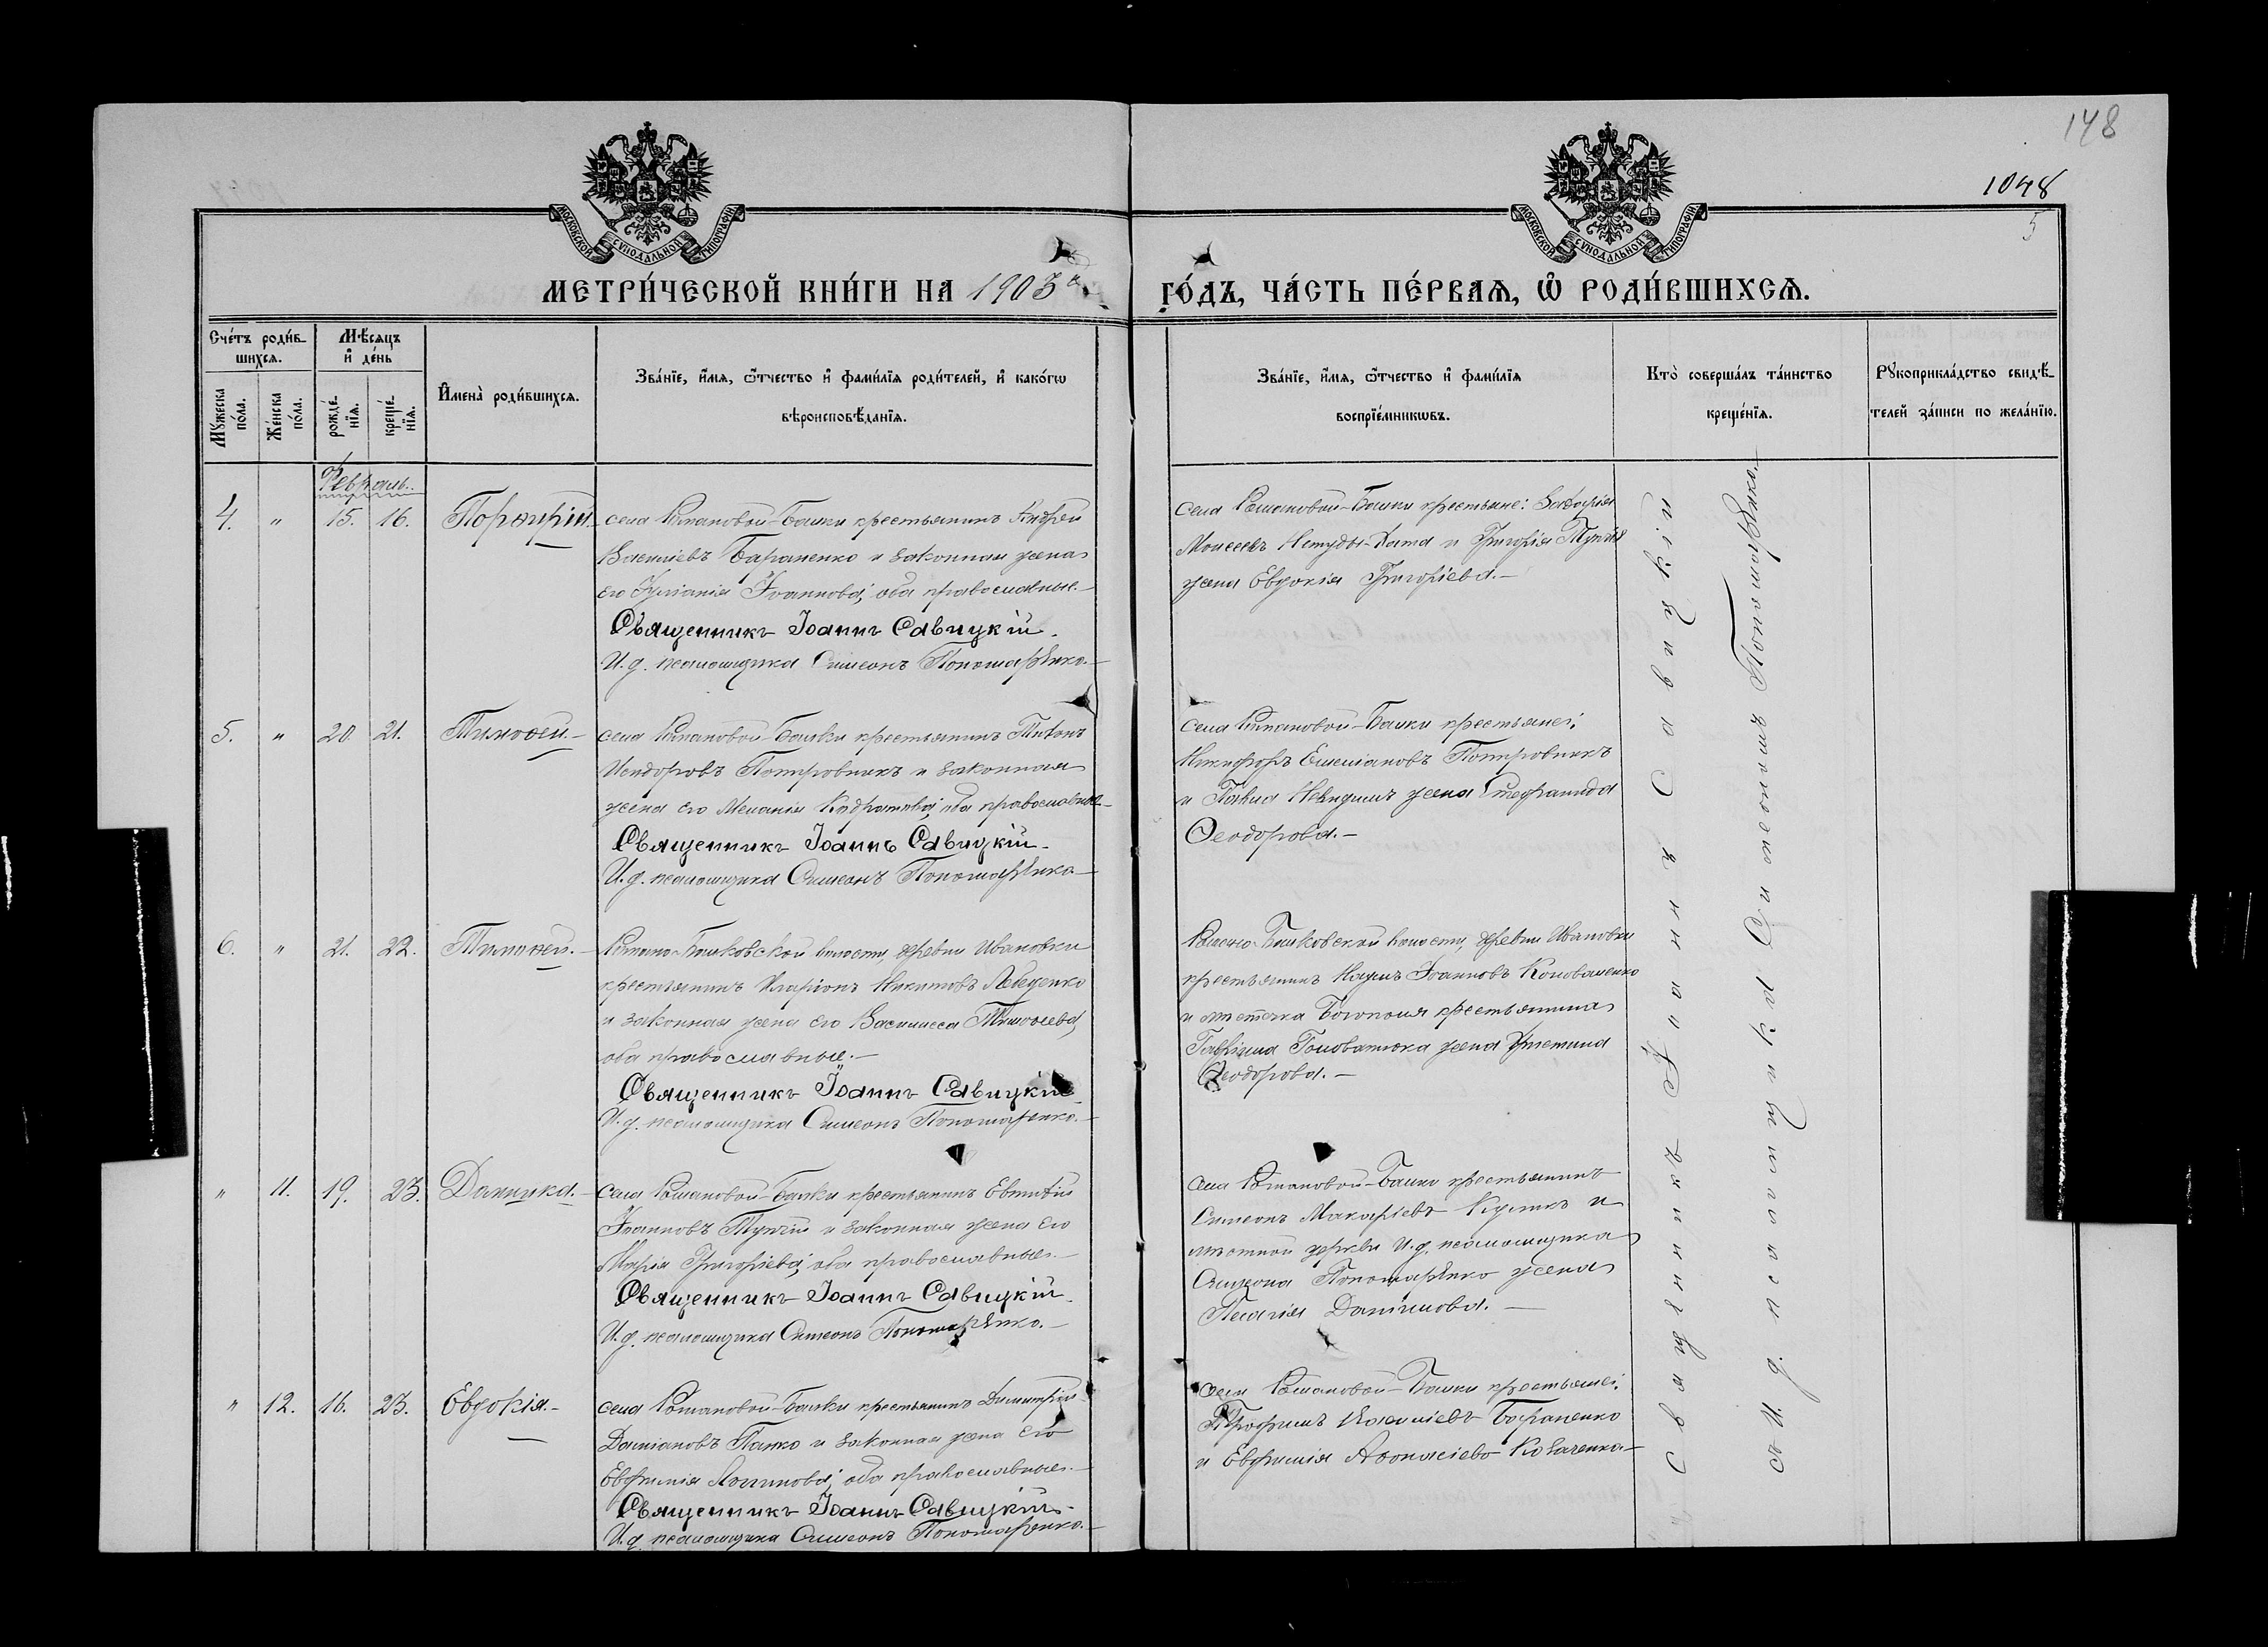 148
1048
5
МОСКОВСКОЙ СѴНОДАЛЬНОЙ ТИПОГРАФІИ
МОСКОВСКОЙ СѴНОДАЛЬНОЙ ТИПОГРАФІИ
МЕТРИ́ЧЕСКОЙ КНИ́ГИ НА 1903й
ГО́ДЪ, ЧА́СТЬ ПЕ́РВАѦ, Ѡ҆ РОДИ́ВШИХСѦ.
Сче́тъ роди́в-
шихсѧ.
Мѣ́сѧцъ
и҆ де́нь
Мꙋ́жеска по́ла.
Же́нска по́ла.
рожде́-нїѧ.
креще́-нїѧ.
И҆мена̀ роди́вшихсѧ.
Зва́нїе, и҆́мѧ, ѻ҆́тчество и҆ фами́лїѧ роди́телей, и҆ како́гѡ
вѣроисповѣ́данїѧ.
Зва́нїе, и҆́мѧ, ѻ҆́тчество и҆ фами́лїѧ
воспрїе́мникѡвъ.
Кто̀ соверша́лъ та́инство
креще́нїѧ.
Рꙋкоприкла́дство свидѣ́-
телей за́писи по жела́нїю.
Февраль.
4. " 15. 16. Порфирій. села Романовой-Балки крестьянинъ Андрей
Василіевъ Бараненко и законная жена
его Іуліанія Іоаннова, оба православные.
Священникъ Іоаннъ Савицкій.
И. д. псаломщика Симеонъ Пономаренко.
села Романовой-Балки крестьяне: Захарія
Моисеевъ Нетуды-Хата и Григорія Тупчія
жена Евдокія Григоріева.
5. " 20. 21. Тимоѳей. села Романовой-Балки крестьянинъ Тихонъ
Исидоровъ Попировникъ и законная
жена его Меланія Кодратова, оба православные
Священникъ Іоаннъ Савицкій.
И. д. псаломщика Симеонъ Пономаренко
села Романовой-Балки крестьяне:
Никифоръ Емеліановъ Попировникъ
и Павла жена Стефанида
Ѳеодорова.
6. " 21. 22. Тимоѳей. Романо-Балковской волости, деревни Ивановки
крестьянинъ Иларіонъ Никитовъ Лебеденко
и законная жена его Василисса Тимоѳеева,
оба православные.
Священникъ Іоаннъ Савицкій
И. д. псаломщика Симеонъ Пономаренко.
Романо-Балковской волости, деревни Ивановки
крестьянинъ Наумъ Іоанновъ Коноваленко
и мѣстечка Богополя крестьянина
Гавріила Головатюка жена
Ѳеодорова.
" 11. 19. 23. Домника. села Романовой-Балки крестьянинъ Евтихій
Іоанновъ Тупчій и законная жена его
Марія Григоріева, оба православные.
Священникъ Іоаннъ Савицкій.
И. д. псаломщика Симеонъ Пономаренко.
села Романовой-Балки крестьянинъ
Симеонъ Макаріевъ Куликъ и
мѣстной церкви И. д. псаломщика
Симеона Пономаренко жена
Пелагія Даніилова.
" 12. 16. 23. Евдокія. села Романовой-Балки крестьянинъ Димитрій
Даміановъ Папко и законная жена его
Евфимія Логинова, оба православные.
Священникъ Іоаннъ Савицкій.
И. д. псаломщика Симеонъ Пономаренко.
села Романовой-Балки крестьяне:
Трофимъ Василіевъ Бараненко
и Евфимія Аѳонасіева Коваленко
Священникъ Іоаннъ Савицкій
И. д. псаломщика Симеонъ Пономаренко.